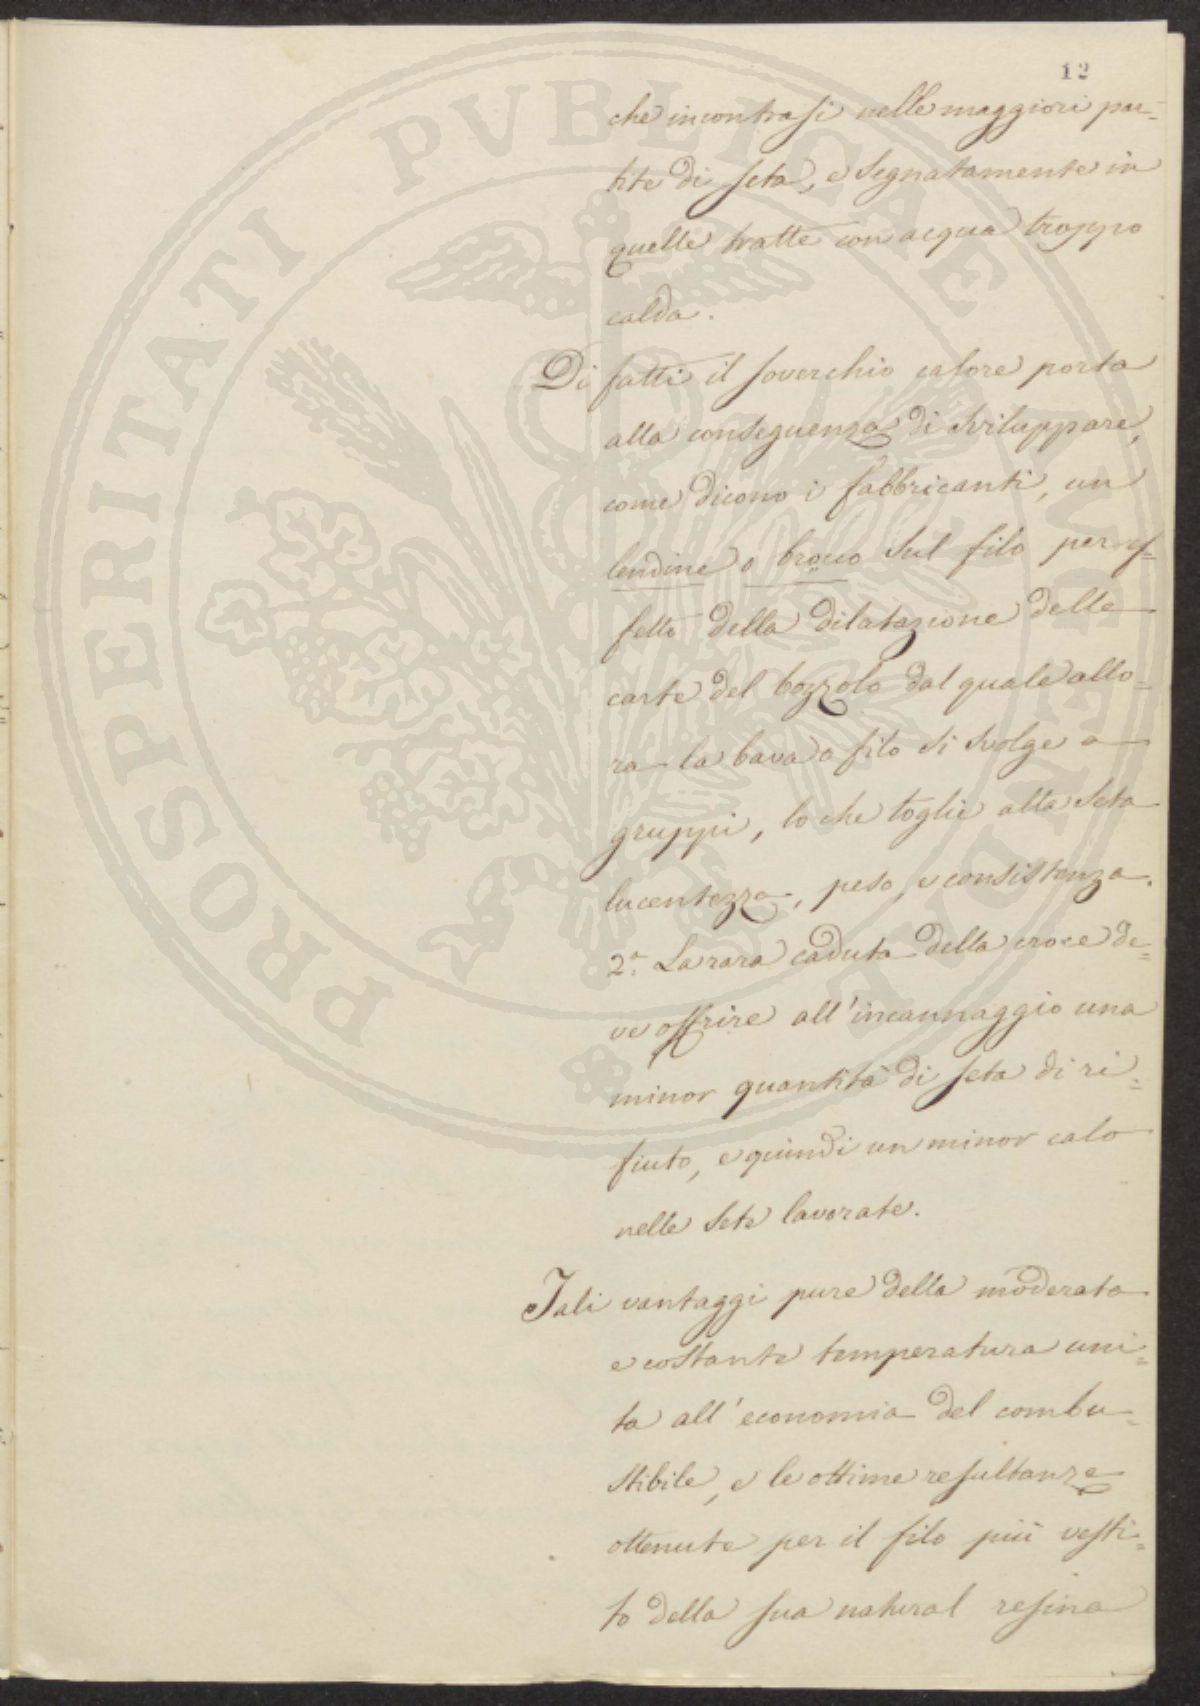 12
che incontrasi nelle maggiori par=
tite di seta, e segnatamente in
quelle tratte con acqua troppo
calda.
Di fatti il soverchio calore porta
alla conseguenza di sviluppare,
come dicono i fabbricanti, un
lendine o brouo sul filo per ef=
fetto della dilatazione delle
carte del bozzolo dal quale allo=
ra la bava o filo si svolge a
gruppi, lo che toglie alla seta
lucentezza, peso, e consistenza.
2.a La rara caduta della croce de=
ve offrire all'incannaggio una
minor quantità di seta di ri=
fiuto, e quindi un minor calo
nelle sete lavorate.
Tali vantaggi pure della moderata
e costante temperatura uni=
ta all'economia del combu=
stibile, e le ottime resultanze
ottenute per il filo più vesti=
to della sua natural resina
PROSPERITATI PVBLICAE AVGENDAE